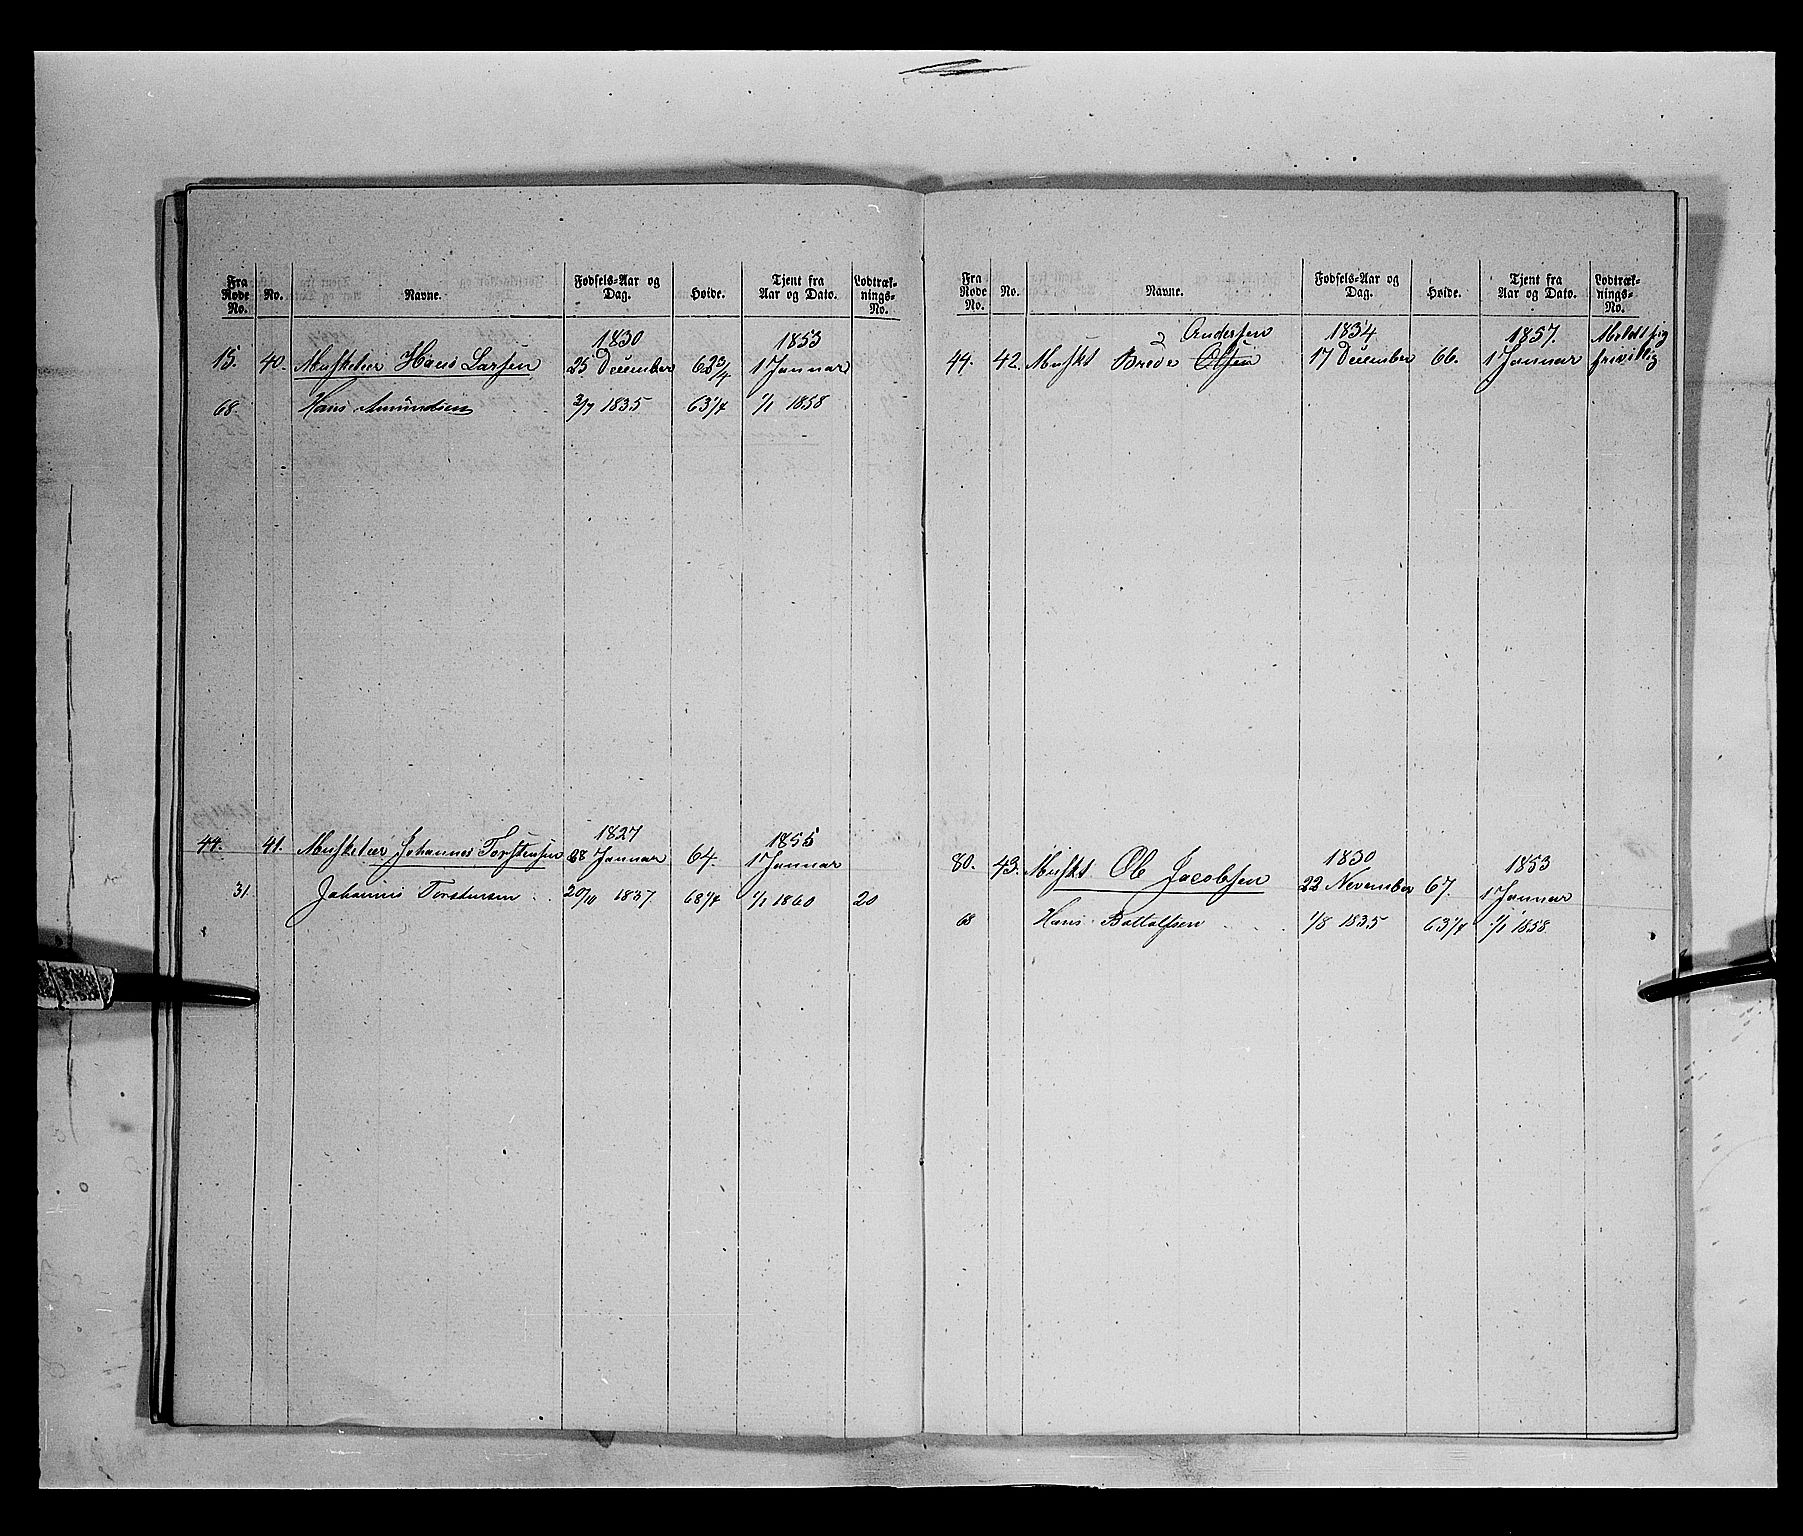 Fra Rode No. No. Navne. Fødsels-Aar og Dag. Høide. Tjent fra Aar og Dato. Lodtræk-nings-No.
1830 1853
15. 40. Musketeer Hans Larsen 25 December 62 3/4 1 Januar
68. Hans Amundsen 2/7 1835 63 1/4 1/1 1858
1827 1855
44. 41. Musketeer Johannes Torstensen 28 Januar 64. 1 Januar
31. Johannes Torstensen 20/10 1837. 68 1/4 1/1 1860 20
Fra Rode No. No. Navne. Fødsels-Aar og Dag. Høide. Tjent fra Aar og Dato. Lodtræk-nings-No.
2 Andersen 1834 1857. Meldt sig
44. 42. Muskt Brede Olsen 17 December 66. 1 Januar frivillig
1830 1853
80. 43. Muskt Ole Jacobsen 22 November 67. 1 Januar
68 Hans Battolfsen 1/8 1835 63 1/4 1/1 1858.